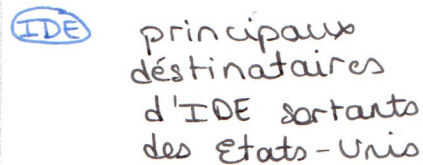 IDE principaux
déstinataires
d'IDE sortants
des Etats-Unis